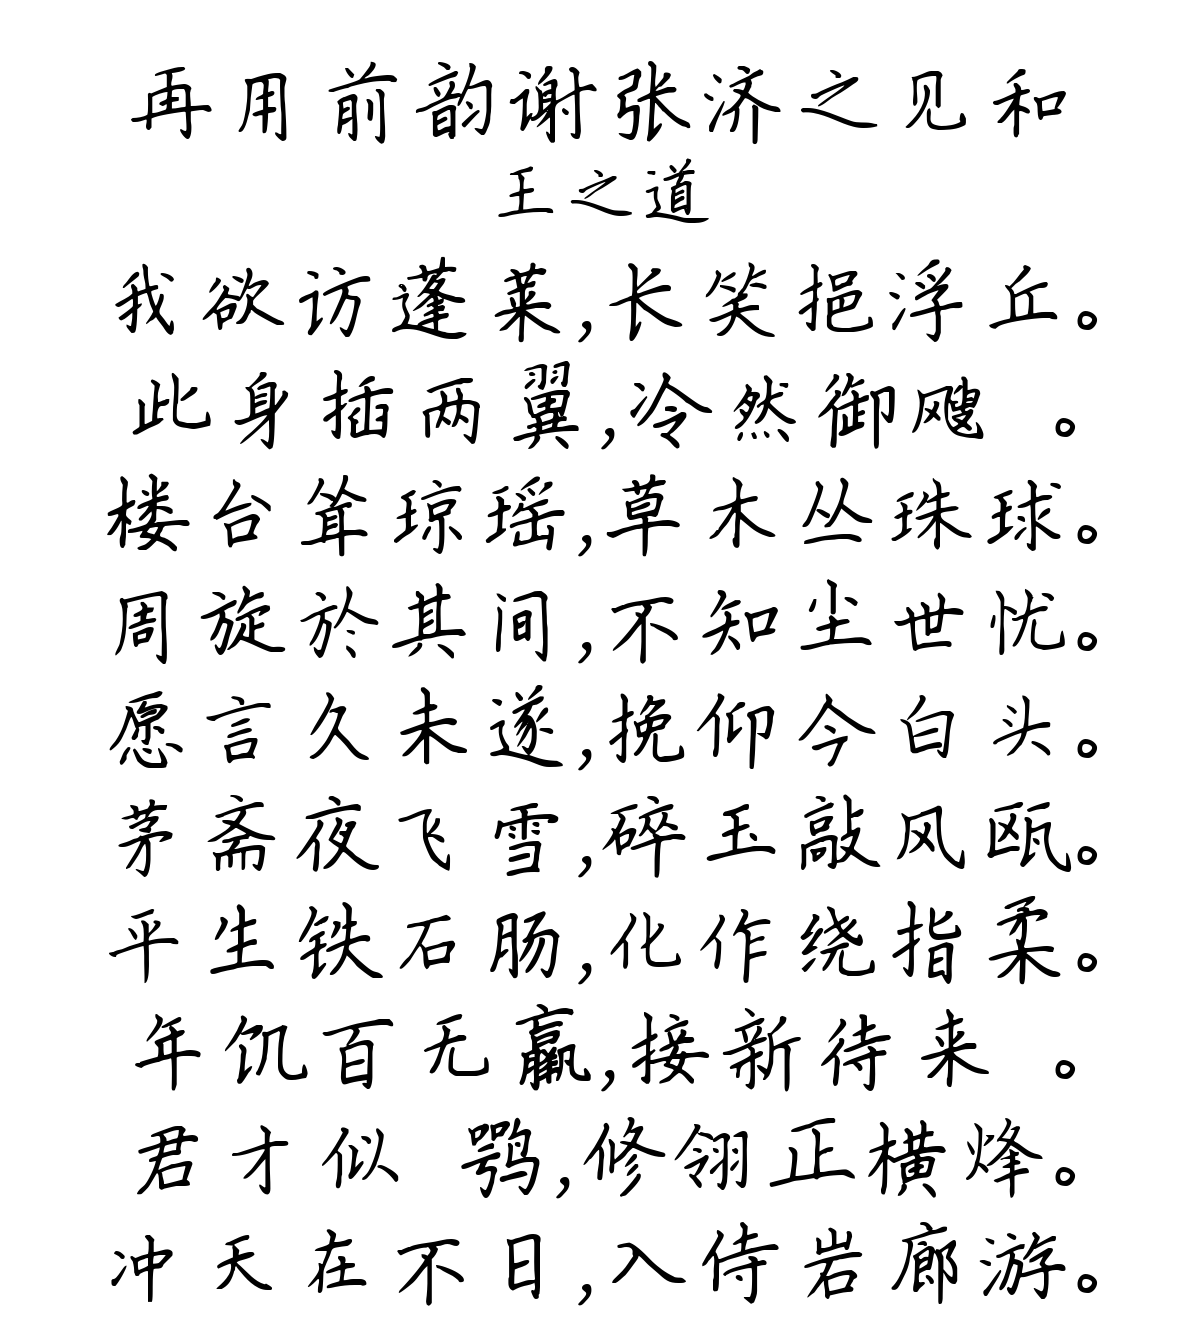 再用前韵谢张济之见和
王之道
我欲访蓬莱,长笑挹浮丘。
此身插两翼,冷然御飕 。
楼台耸琼瑶,草木丛珠球。
周旋於其间,不知尘世忧。
愿言久未遂,挽仰今白头。
茅斋夜飞雪,碎玉敲风瓯。
平生铁石肠,化作绕指柔。
年饥百无赢,接新待来 。
君才似 鹗,修翎正横烽。
冲天在不日,入侍岩廊游。